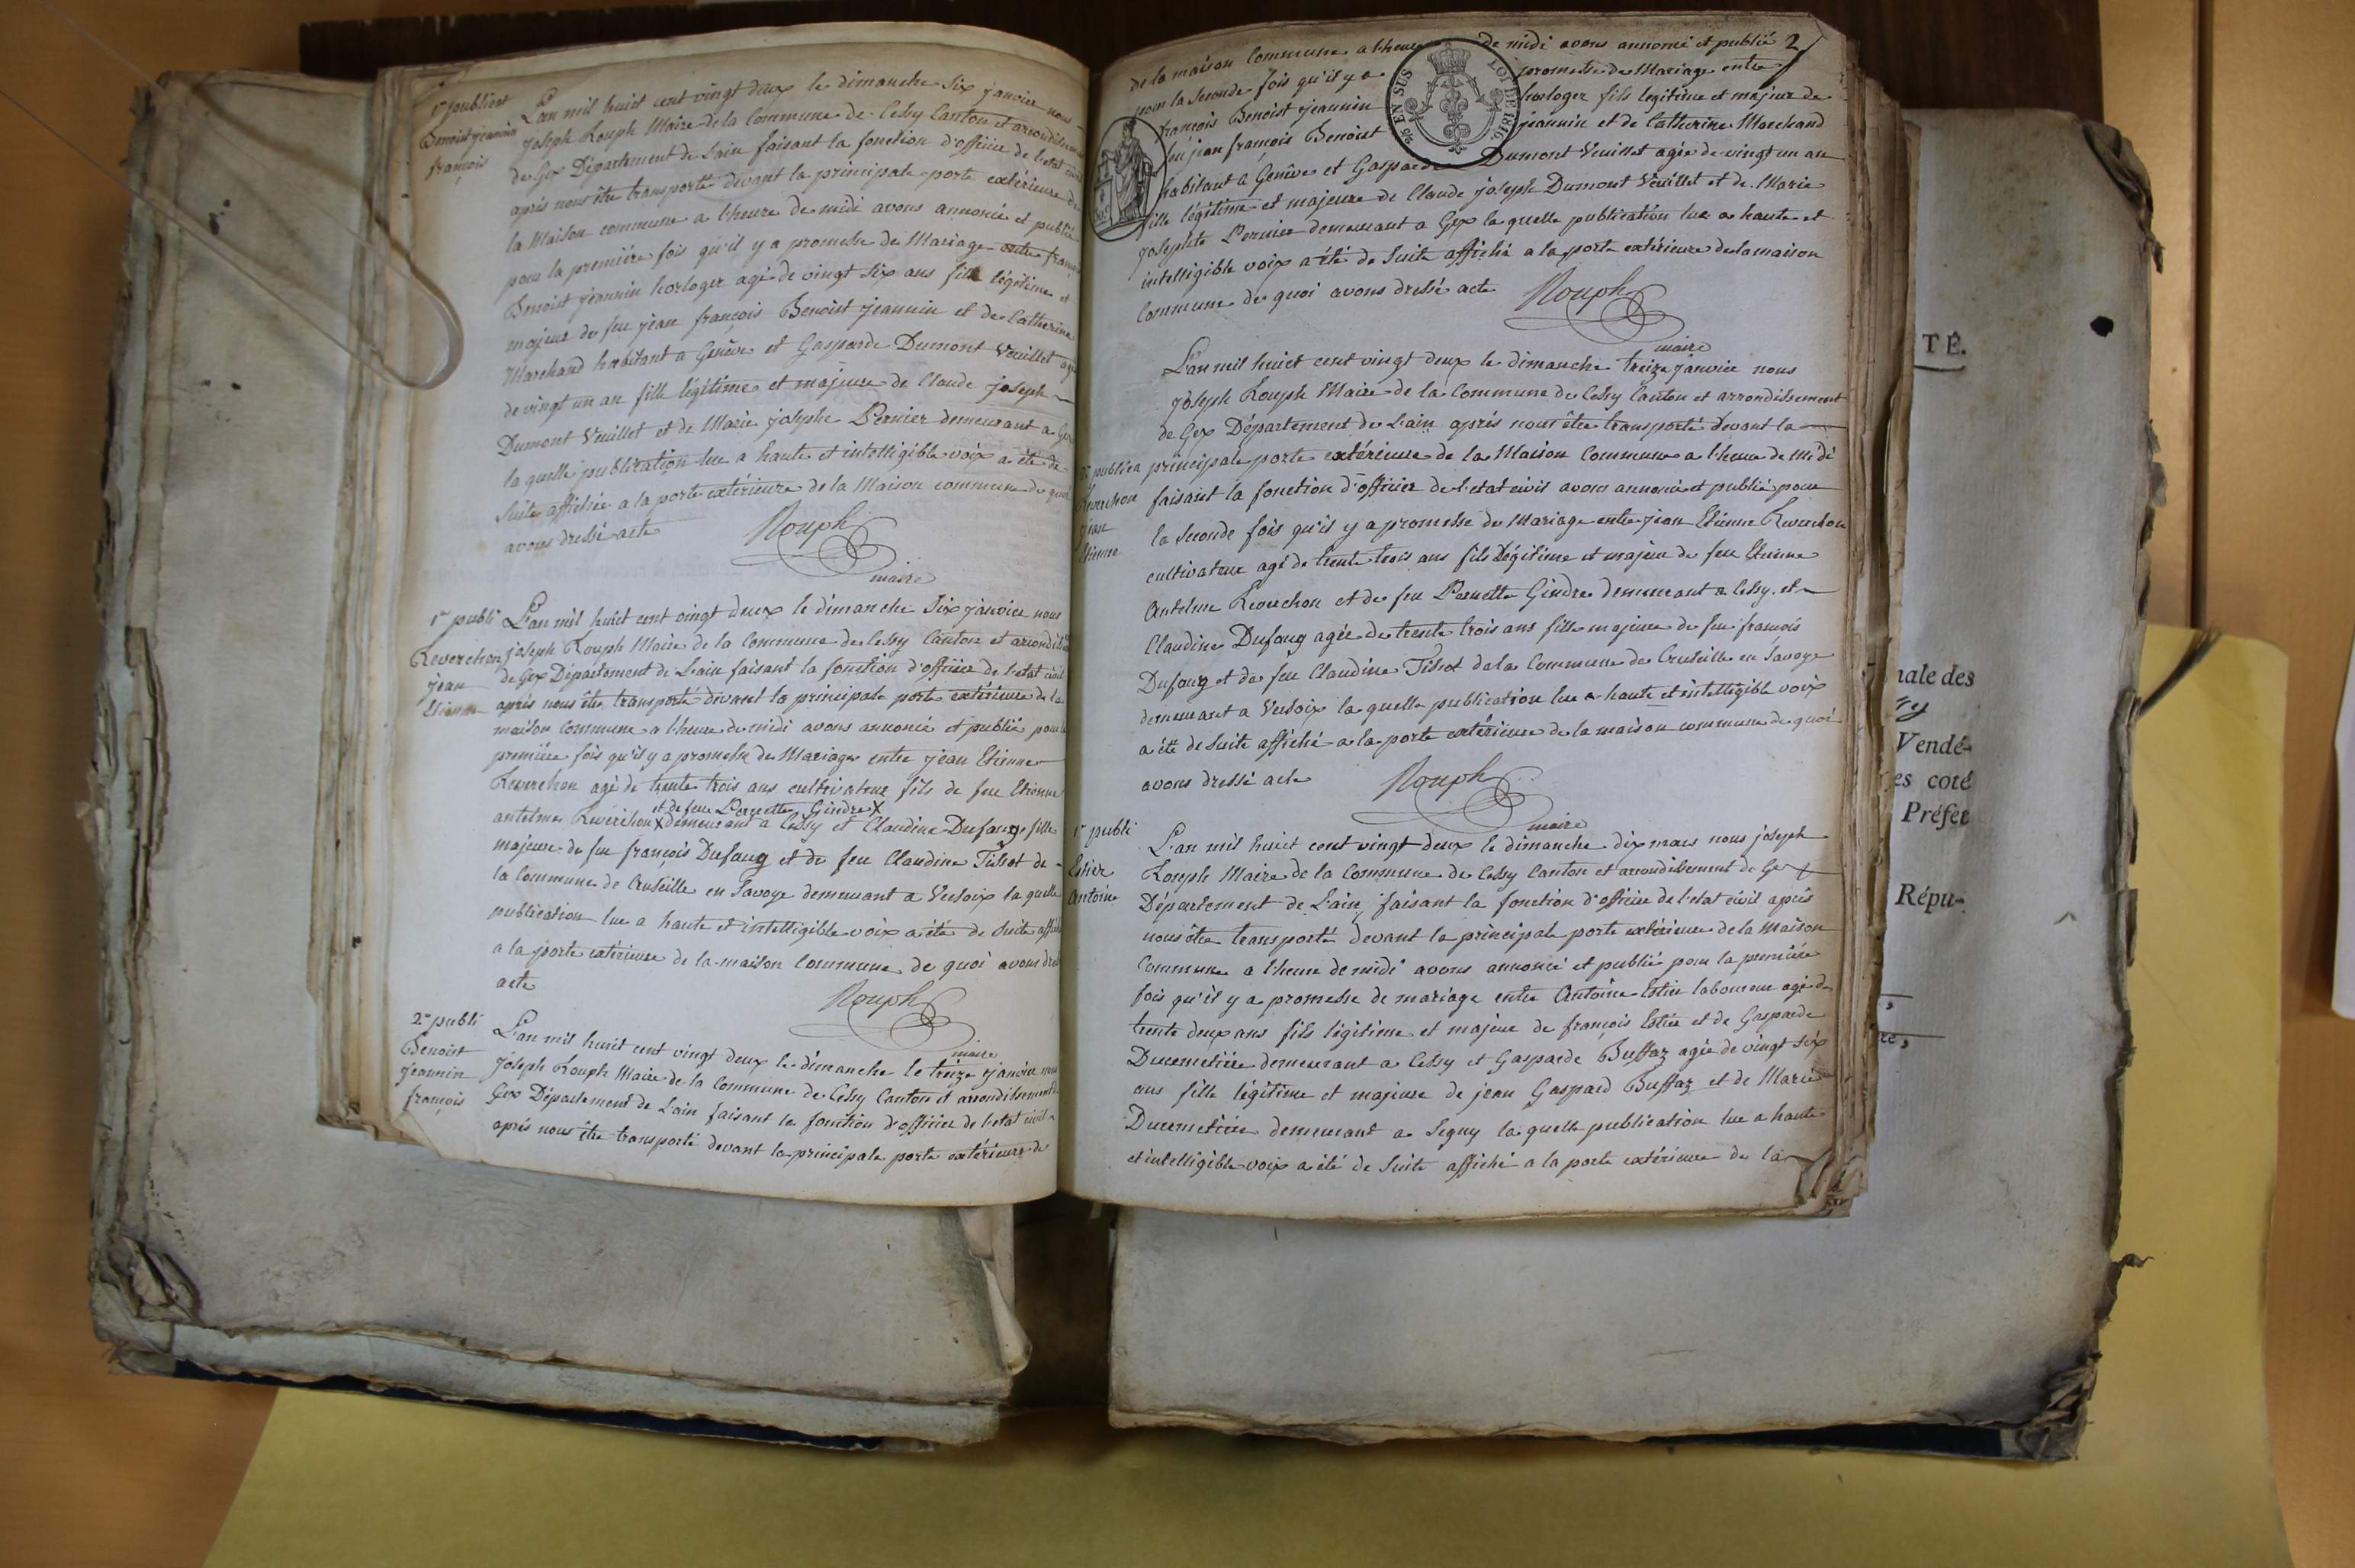 1re publicat
Benoist jeannin
françois
L'an mil huit cent vingt deux le dimanche Six janvier nous
joseph Rouph Maire de la Commune de Cessy Canton et arrondissement
de Gex Département de L'ain faisant la fonction d'officier de l'etat civil
après nous être transporté devant la principale porte extérieure de
la Maison commune a l'heure de midi avons annoncé et publié
pour la première fois qu'il y a promesse de Mariage entre françois
Benoist jeannin horloger agé de vingt Six ans fils légitime et
majeur de feu jean françois Benoist jeannin et de Catherine
Marchand habitant a Genêve et Gasparde Dumont Veuillet agée
de vingt un an fille légitime et majeure de Claude joseph
Dumont Veuillet et de Marie josephe Pernier demeurant a Gex
la quelle publication lue a haute et intelligible voix a été de
Suite affichée a la porte extérieure de la Maison commune de quoi
avons dressé acte
Rouph
maire
1re publi
Reverchon
jean
Etienne
L'an mil huit cent vingt deux le dimanche Six janvier nous
joseph Rouph Maire de la Commune de Cessy Canton et arrondiss
de Gex Département de L'ain faisant la fonction d'officier de l'etat civil
après nous être transporté devant la principale porte extérieure de la
maison Commune a l'heure de midi avons annoncé et publié pour la
première fois qu'il y a promesse de Mariage entre jean Etienne
Reverchon agé de trente trois ans cultivateur fils de feu Etienne
et de feue Pernette Gindre X
antelme Reverchon X demeurant a Cessy et Claudine Dufoug fille
majeure de feu françois Dufoug et de feu Claudine Tissot de
la Commune de Cruseille en Savoye demeurant a Versoix la quelle
publication lue a haute et intelligible voix a été de Suite affiché
a la porte extérieure de la maison Commune de quoi avons dressé
acte
Rouph
maire
2e publi
Benoist
jeannin
françois
L'an mil huit cent vingt deux le dimanche le treize janvier nous
joseph Rouph Maire de la Commune de Cessy Canton et arrondissement
Gex Département de L'ain faisant la fonction d'officier de l'etat civil
après nous être transporté devant la principale porte extérieure de
2
de la maison Commune a l'heure de midi avons annoncé et publié
pour la Seconde fois qu'il y a promesse de Mariage entre
françois Benoist jeannin horloger fils legitime et majeur de
feu jean françois Benoist jeannin et de Catherine Marchand
habitant a Genêve et Gasparde Dumont Veuillet agée de vingt un an
fille légitime et majeure de Claude joseph Dumont Veuillet et de Marie
josephte Pernier demeurant a Gex la quelle publication lue a haute et
intelligible voix a été de Suite affiché a la porte extérieure de la maison
Commune de quoi avons dressé acte
EN SUS
LOI DE 1816
Rouph
maire
2e publica
Reverchon
jean
Etienne
L'an mil huit cent vingt deux le dimanche treize janvier nous
joseph Rouph Maire de la Commune de Cessy Canton et arrondissement
de Gex Département de L'ain après nous être transporté devant la
principale porte extérieure de la Maison Commune a l'heure de midi
faisant la fonction d'officier de l'etat civil avons annoncé et publié pour
la Seconde fois qu'il y a promesse de Mariage entre jean Etienne Reverchon
cultivateur agé de trente trois ans fils Légitime et majeur de feu Etienne
Antelme Reverchon et de feu Pernette Gindre demeurant a Cessy et
Claudine Dufoug agée de trente trois ans fille majeure de feu françois
Dufoug et de feu Claudine Tissot de la Commune de Cruseille en Savoye
demeurant a Versoix la quelle publication lue a haute et intelligible voix
a été de Suite affiché a la porte extérieure de la maison commune de quoi
avons dressé acte
Rouph
maire
1re publi
Estier
Antoine
L'an mil huit cent vingt deux le dimanche dix mars nous joseph
Rouph Maire de la Commune de Cessy Canton et arrondissement de Gex
Département de L'ain faisant la fonction d'officier de l'etat civil après
nous être transporté devant la principale porte extérieure de la Maison
Commune a l'heure de midi avons annoncé et publié pour la première
fois qu'il y a promesse de mariage entre Antoine Estier laboureur agé de
trente deux ans fils légitime et majeur de françois Estier et de Gasparde
Ducemetière demeurant a Cessy et Gasparde Buffaz agée de vingt six
ans fille légitime et majeure de jean Gaspard Buffaz et de Marie
Ducemetière demeurant a Segny la quelle publication lue a haute
et intelligible voix a été de Suite affiché a la porte extérieure de la
TÉ.
nale des
Vendé-
es coté
Préfet
Répu-